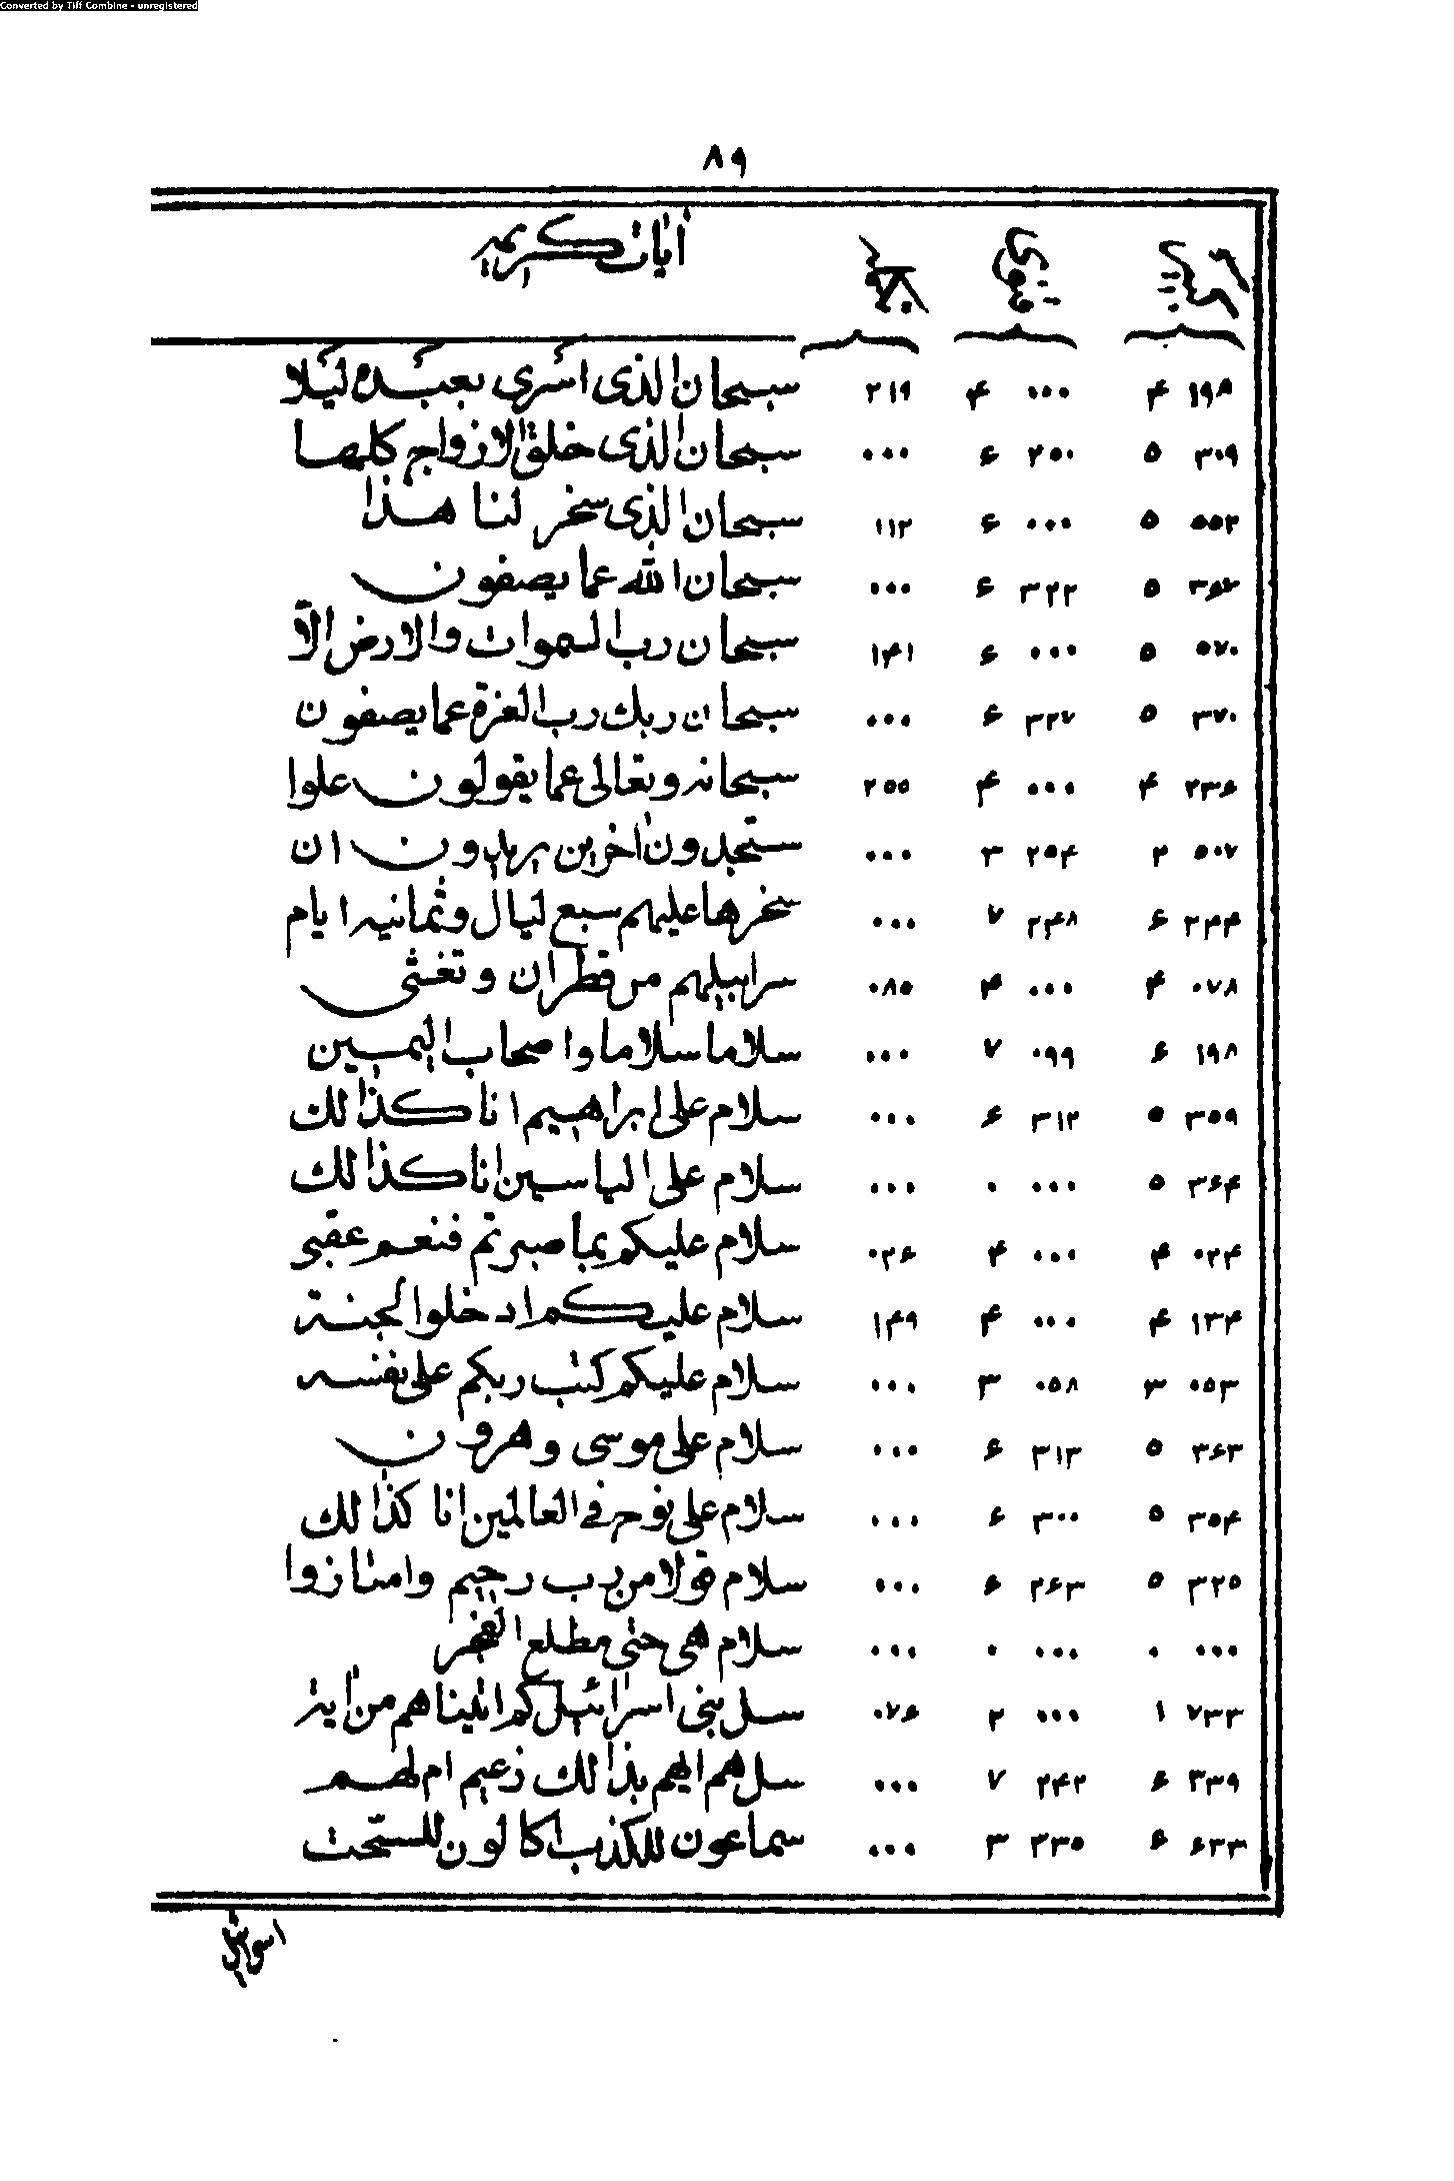 Converted by Tiff Combine - unregistered
۸۹
اٰیات کریمه
۱۹۸ ۴ ۰۰۰ ۴ ۲۱۹ سبحان الذی اسری بعبده لیلا
۳۰۹ ۵ ۲۵۰ ۶ ۰۰۰ سبحان الذی خلق الازواج کلها
۵۵۲ ۵ ۰۰۰ ۶ ۱۱۲ سبحان الذی سخر لنا هذا
۳۶۷ ۵ ۳۲۲ ۶ ۰۰۰ سبحان الله عما یصفون
۵۷۰ ۵ ۰۰۰ ۶ ۱۴۱ سبحان رب السموات والارض الا
۳۷۰ ۵ ۳۲۷ ۶ ۰۰۰ سبحان ربك رب العزة عما یصفون
۲۳۶ ۴ ۰۰۰ ۴ ۲۵۵ سبحانه وتعالی عما یقولون علوا
۵۰۷ ۲ ۲۵۴ ۳ ۰۰۰ ستجدون اخرین یریدون ان
۲۴۴ ۶ ۲۴۸ ۷ ۰۰۰ سخرها علیهم سبع لیال وثمانیه ایام
۰۷۸ ۴ ۰۰۰ ۴ ۰۸۵ سرابیلهم من قطران وتغشی
۱۹۸ ۶ ۰۹۹ ۷ ۰۰۰ سلاما سلاما واصحاب الیمین
۳۵۹ ۵ ۳۱۲ ۶ ۰۰۰ سلام علی ابراهیم انا کذالك
۳۶۴ ۵ ۰۰۰ ۰ ۰۰۰ سلام علی الیاسین انا کذالك
۰۲۴ ۴ ۰۰۰ ۴ ۰۲۶ سلام علیکم بما صبرتم فنعم عقبی
۱۳۴ ۴ ۰۰۰ ۴ ۱۴۹ سلام علیکم ادخلوا الجنة
۰۵۳ ۳ ۰۵۸ ۳ ۰۰۰ سلام علیکم کتب ربکم علی نفسه
۳۶۳ ۵ ۳۱۳ ۶ ۰۰۰ سلام علی موسی وهرون
۳۵۴ ۵ ۳۰۰ ۶ ۰۰۰ سلام علی نوح فی العالمین انا کذالك
۳۲۵ ۵ ۲۶۳ ۶ ۰۰۰ سلام قولا من رب رحیم وامتازوا
۰۰۰ ۰ ۰۰۰ ۰ ۰۰۰ سلام هی حتی مطلع الفجر
۷۳۳ ۱ ۰۰۰ ۲ ۰۷۶ سل بنی اسرائیل کم اتیناهم من ایة
۳۳۹ ۶ ۲۴۲ ۷ ۰۰۰ سلهم ایهم بذالك زعیم ام لهم
۶۳۳ ۶ ۳۳۵ ۳ ۰۰۰ سماعون للکذب اکالون للسحت